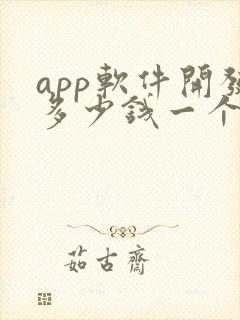 app軟件開發
多少錢一个
茹古齋